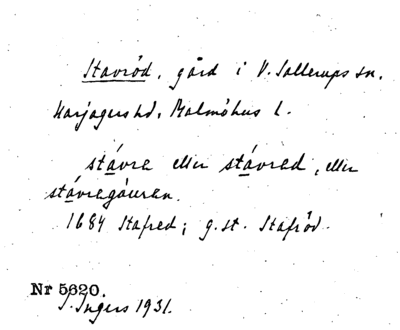 Stavröd, gård i V. Sallerups sn.
Harjagers hd, Malmöhus l.
stávre eller stávred, eller
stávregåuren.
1684 Stafred; g.st. Stafröd.
Nr 5620.
I. Ingers 1931.